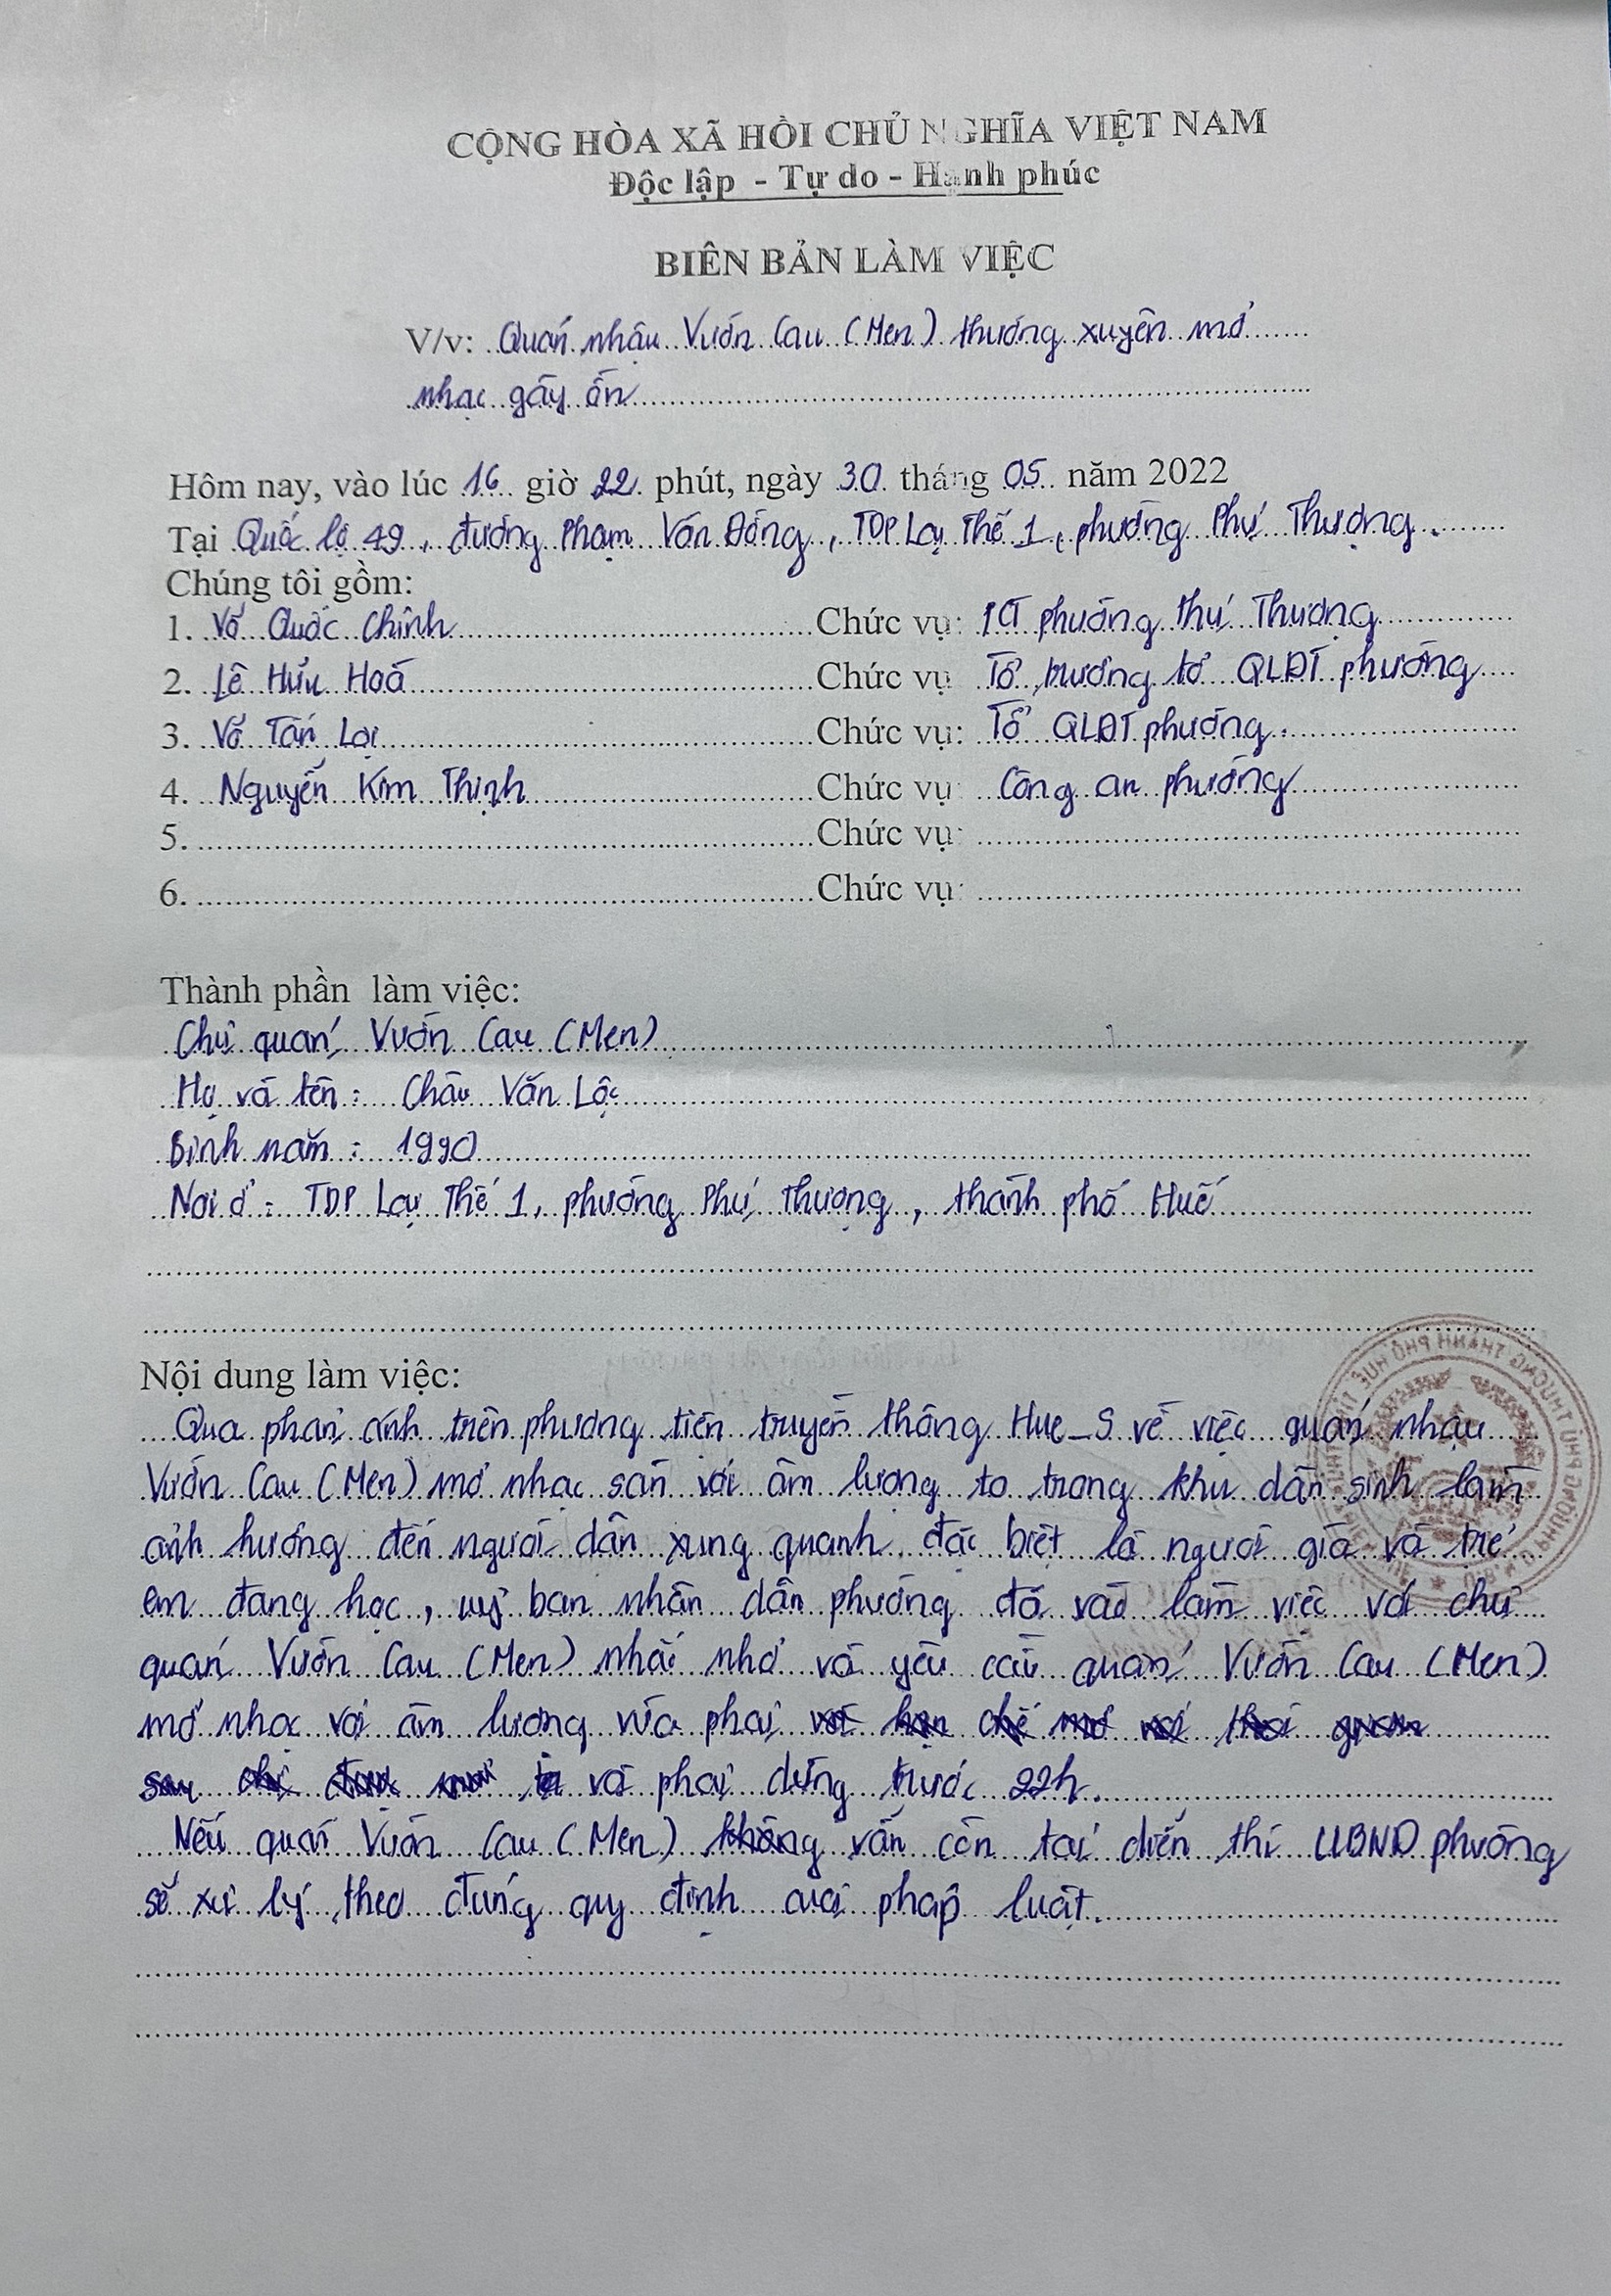 CỘNG HÒA XÃ HỘI CHỦ NGHĨA VIỆT NAM
Độc lập - Tự do - Hạnh phúc
BIÊN BẢN LÀM VIỆC
V/v: Quán nhậu Vườn Cau (Men) thường xuyên mở
nhạc gây ồn
Hôm nay, vào lúc 16 giờ 22 phút, ngày 30 tháng 05 năm 2022
Tại Quốc lộ 49, đường Phạm Văn Đồng, TDP Lại Thế 1, phường Phú Thượng.
Chúng tôi gồm:
1. Võ Quốc Chính Chức vụ: PCT phường Phú Thượng
2. Lê Hữu Hoá Chức vụ Tổ trưởng tổ QLĐT phường
3. Võ Tấn Lợi Chức vụ: Tổ QLĐT phường.
4. Nguyễn Kim Thịnh Chức vụ: Công an phường
5. Chức vụ:
6. Chức vụ:
Thành phần làm việc:
Chủ quán Vườn Cau (Men)
Họ và tên: Châu Văn Lộc
Sinh năm: 1990
Nơi ở: TDP Lại Thế 1, phường Phú Thượng, thành phố Huế
Nội dung làm việc:
Qua phản ánh trên phương tiện truyền thông Hue_S về việc quán nhậu
Vườn Cau (Men) mở nhạc sàn với âm lượng to trong khu dân sinh làm
ảnh hưởng đến người dân xung quanh đặc biệt là người già và trẻ
em đang học, uỷ ban nhân dân phường đã vào làm việc với chủ
quán Vườn Cau (Men) nhắc nhở và yêu cầu quán Vườn Cau (Men)
mở nhạc với âm lượng vừa phải
và phải dừng trước 22h.
Nếu quán Vườn Cau (Men) không vẫn còn tái diễn thì UBND phường
sẽ xử lý theo đúng quy định của pháp luật.